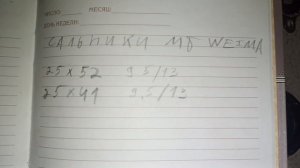 ЧИСЛО МЕСЯЦ
ДЕНЬ НЕДЕЛИ
САЛЬНИКИ МБ WEIMA
25 x 52 9 5/13
25 x 41 9,5/13